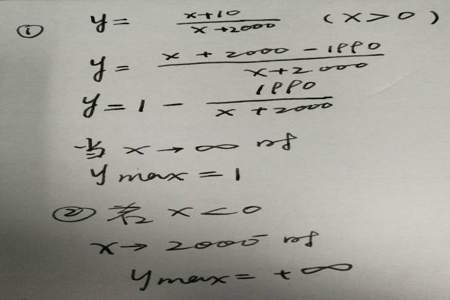 ① y = (x+10)/(x+2000) (x>0)
y = (x+2000-1990)/(x+2000)
y = 1 - 1990/(x+2000)
当 x→∞ 时
y max = 1
② 若 x<0
x→2000⁻ 时
y max = +∞